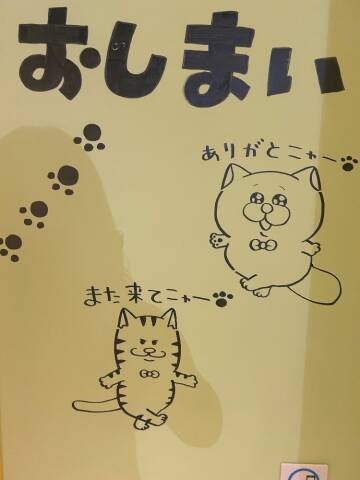 おしまい
ありがとニャー
また来てニャー